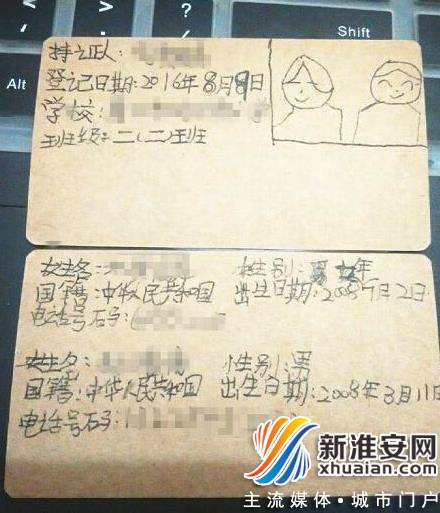 Shift
Alt
持证人:
登记日期:2016年8月9日
学校:
班级:二(二)班
姓名: 性别: 女
国籍:中华人民共和国 出生日期:2008年7月2日
电话号码:
姓名: 性别:男
国籍:中华人民共和国 出生日期:2008年3月11日
电话号码:
新淮安网
xhuaian.com
主流媒体·城市门户